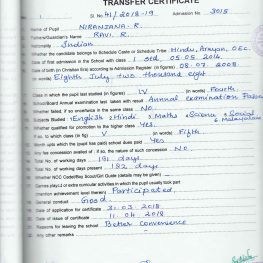 TRANSFER CERTIFICATE
Sl. No. 41/2018-19 Admission No. 3015
Name of Pupil NIRANJANA. R.
Father's/Guardian's Name RAVI. R.
Nationality Indian
Whether the candidate belongs to Schedule Caste or Schedule Tribe Hindu, Arayan, OEC.
Date of first admission in the School with class 1 std, 05.05.2014
Date of birth (in Christian Era) according to Admission Register (in figures) 08.07.2008.
(in words) Eighth July two thousand eight
Class in which the pupil last studied (in figures) IV (in words) Fourth
School/Board Annual examination last taken with result Annual examination Passed
Whether failed, if so once/twice in the same class No.
Subjects Studied English Hindi Maths Science Social Malayalam
Whether qualified for promotion to the higher class Yes.
If so, to which class (in fig) V (in words) Fifth
Month upto which the pupil has paid school dues paid Yes.
Any fee concession availed of: if so, the nature of such concession No.
Total No. of working days 191 days
Total No. of working days present 182 days
Whether NCC Cadet/Boy Scout/Girl Guide (details may be given)
Games played or extra curricular activities in which the pupil usually took part
(mention achievement level therein) Participated,
General conduct Good
Date of application for certificate 31-03-2018
Date of issue of certificate 11-04-2018
Reasons for leaving the school Better Convenience
Any other remarks